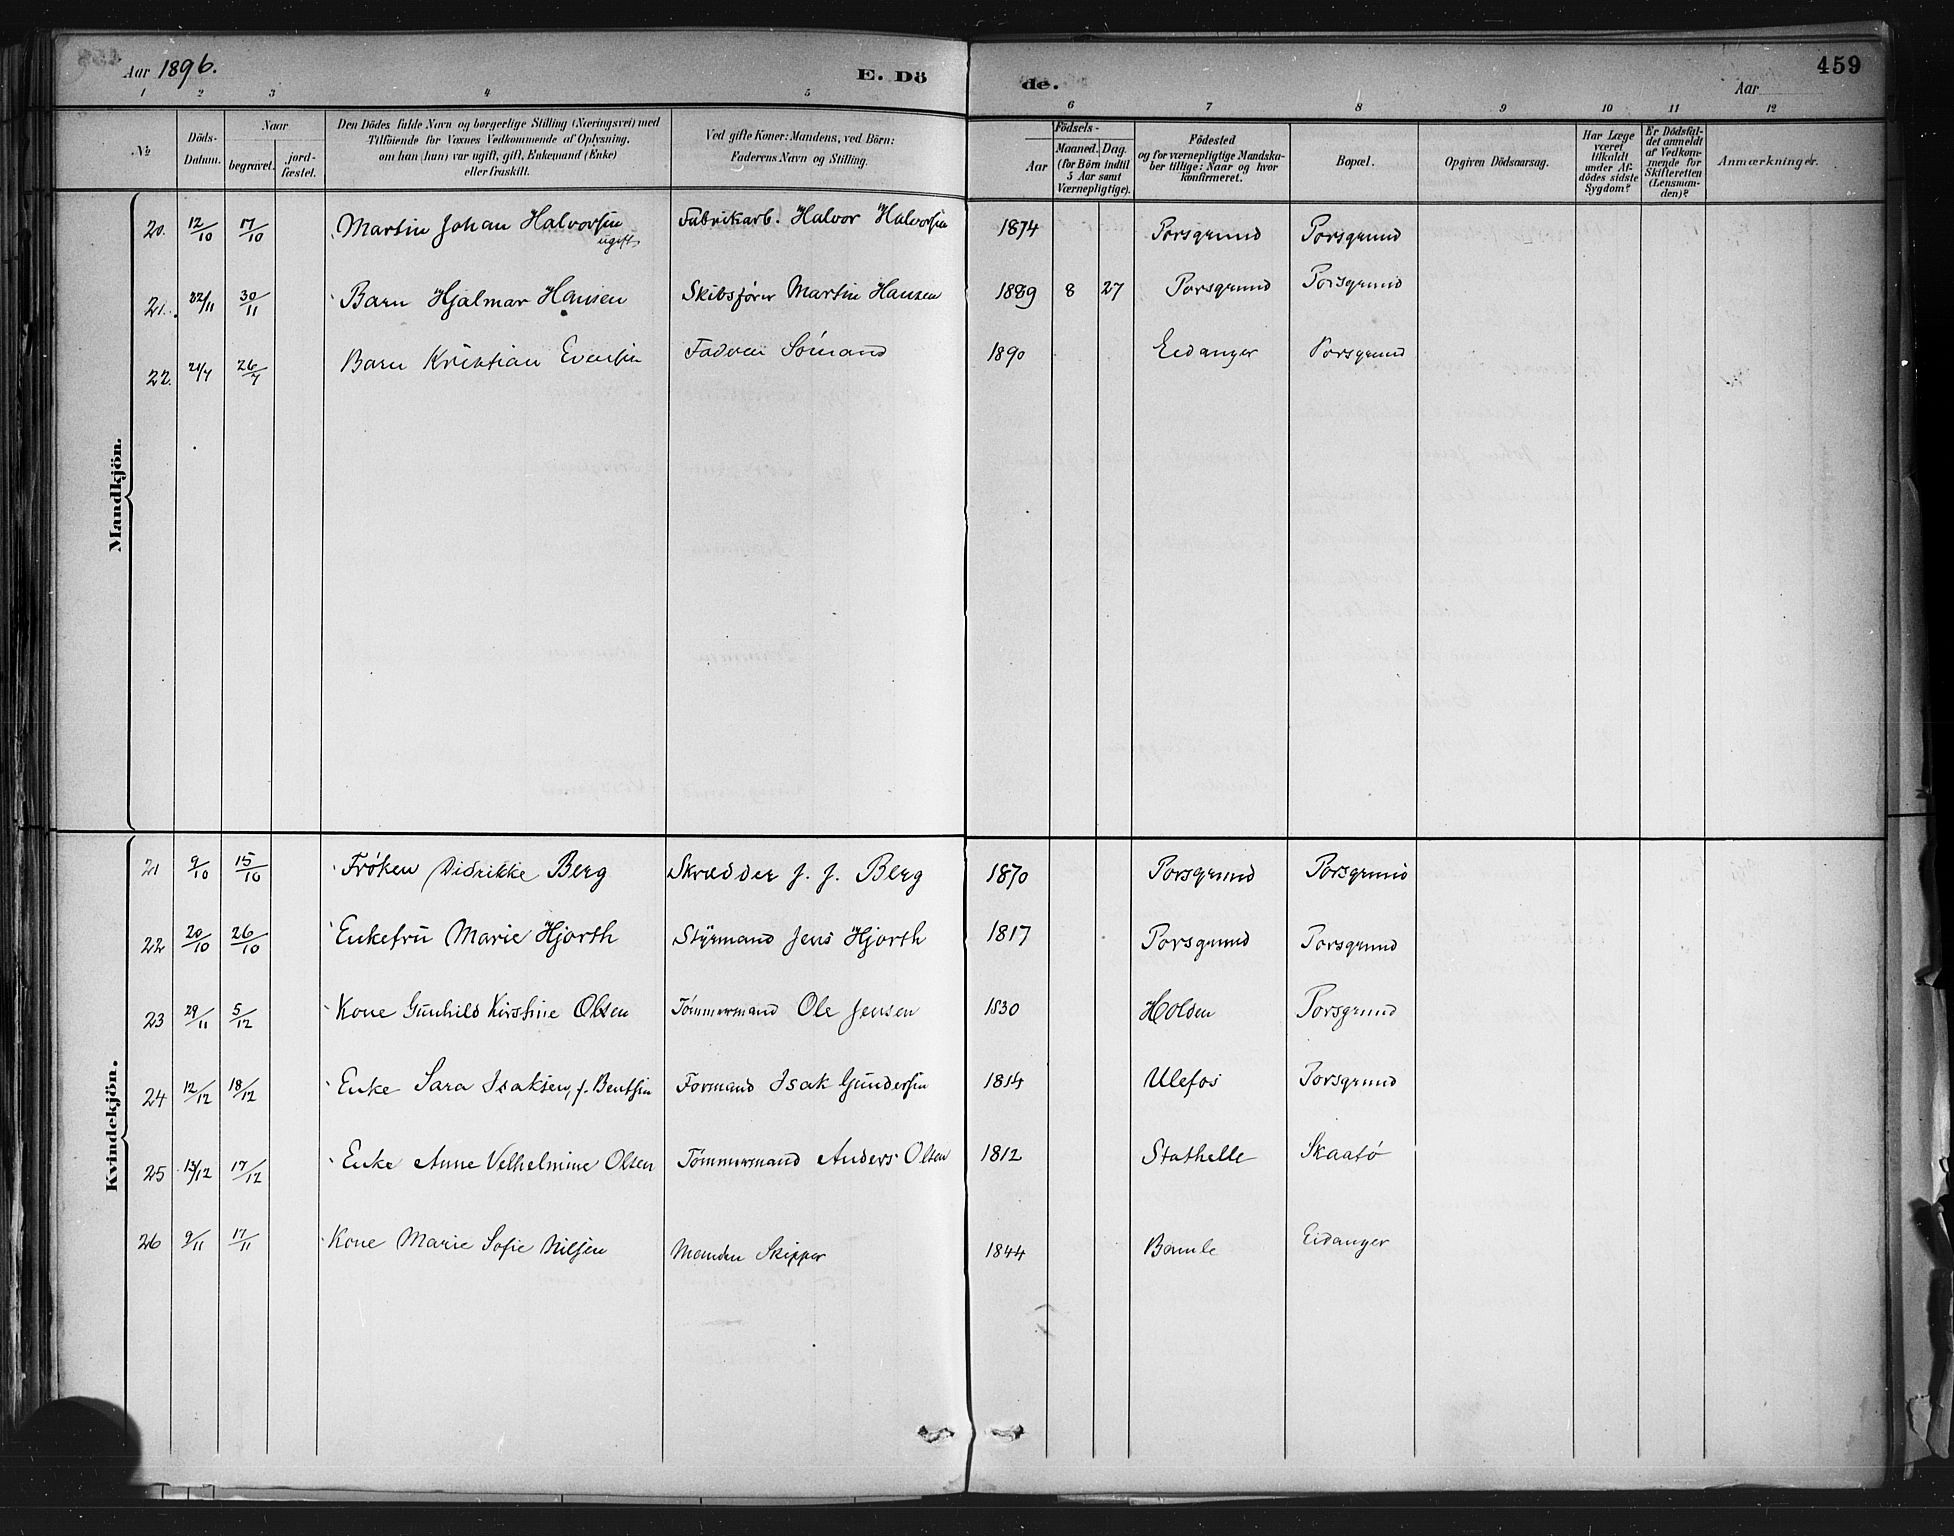 Aar 1896. E. Dö de. Aar 459
1 2 3 4 5 6 7 8 9 10 11 12
№ Döds-Datum. Naar begravet. jord-fæstet. Den Dödes fulde Navn og borgerlige Stilling (Næringsvei) med Tilföiende for Voxnes Vedkommende af Oplysning, om han (hun) var ugift, gift, Enkemand (Enke) eller fraskilt. Ved gifte Koner: Mandens, ved Börn: Faderens Navn og Stilling. Födsels- Aar Maaned. Dag. (for Börn indtil 5 Aar samt Værnepligtige). Födested og for værnepligtige Mandska-ber tillige: Naar og hvor konfirmeret. Bopæl. Opgiven Dödsaarsag. Har Læge været tilkaldt under Af-dödes sidste Sygdom? Er Dödsfal-det anmeldt af Vedkom-mende for Skifteretten (Lensman-den)? Anmærkninger.
Mandkjön.
20. 12/10 17/10 Martin Johan Halvorsen ugift Fabrikarb. Halvor Halvorsen 1874 Porsgrund Porsgrund
21. 22/11 30/11 Barn Hjalmar Hansen Skibsfører Martin Hansen 1889 8 27 Porsgrund Porsgrund
22. 21/7 26/7 Barn Kristian Evensen Faderen Sömand 1890 Eidanger Porsgrund
Kvindekjön.
21 9/10 15/10 Frøken Didrikke Berg Skrædder J. J. Berg 1870 Porsgrund Porsgrund
22 20/10 26/10 Enkefru Marie Hjorth Styrmand Jens Hjorth 1817 Porsgrund Porsgrund
23 29/11 5/12 Kone Gunhild Kirstine Olsen Tömmermand Ole Jensen 1830 Holden Porsgrund
24 12/12 18/12 Enke Sara Isaksen, f. Bentsen Formand Isak Gundersen 1814 Ulefos Porsgrund
25 13/12 17/12 Enke Anne Velhelmine Olsen Tömmermand Anders Olsen 1812 Stathelle Skaatø
26 9/11 17/11 Kone Marie Sofie Nilsen Manden Skipper 1844 Bamle Eidanger